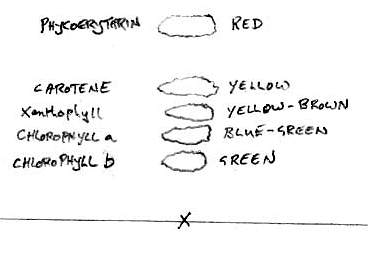 PHYCOERYTHRIN RED
CAROTENE YELLOW
Xanthophyll YELLOW-BROWN
CHLOROPHYLL a BLUE-GREEN
CHLOROPHYLL b GREEN
X